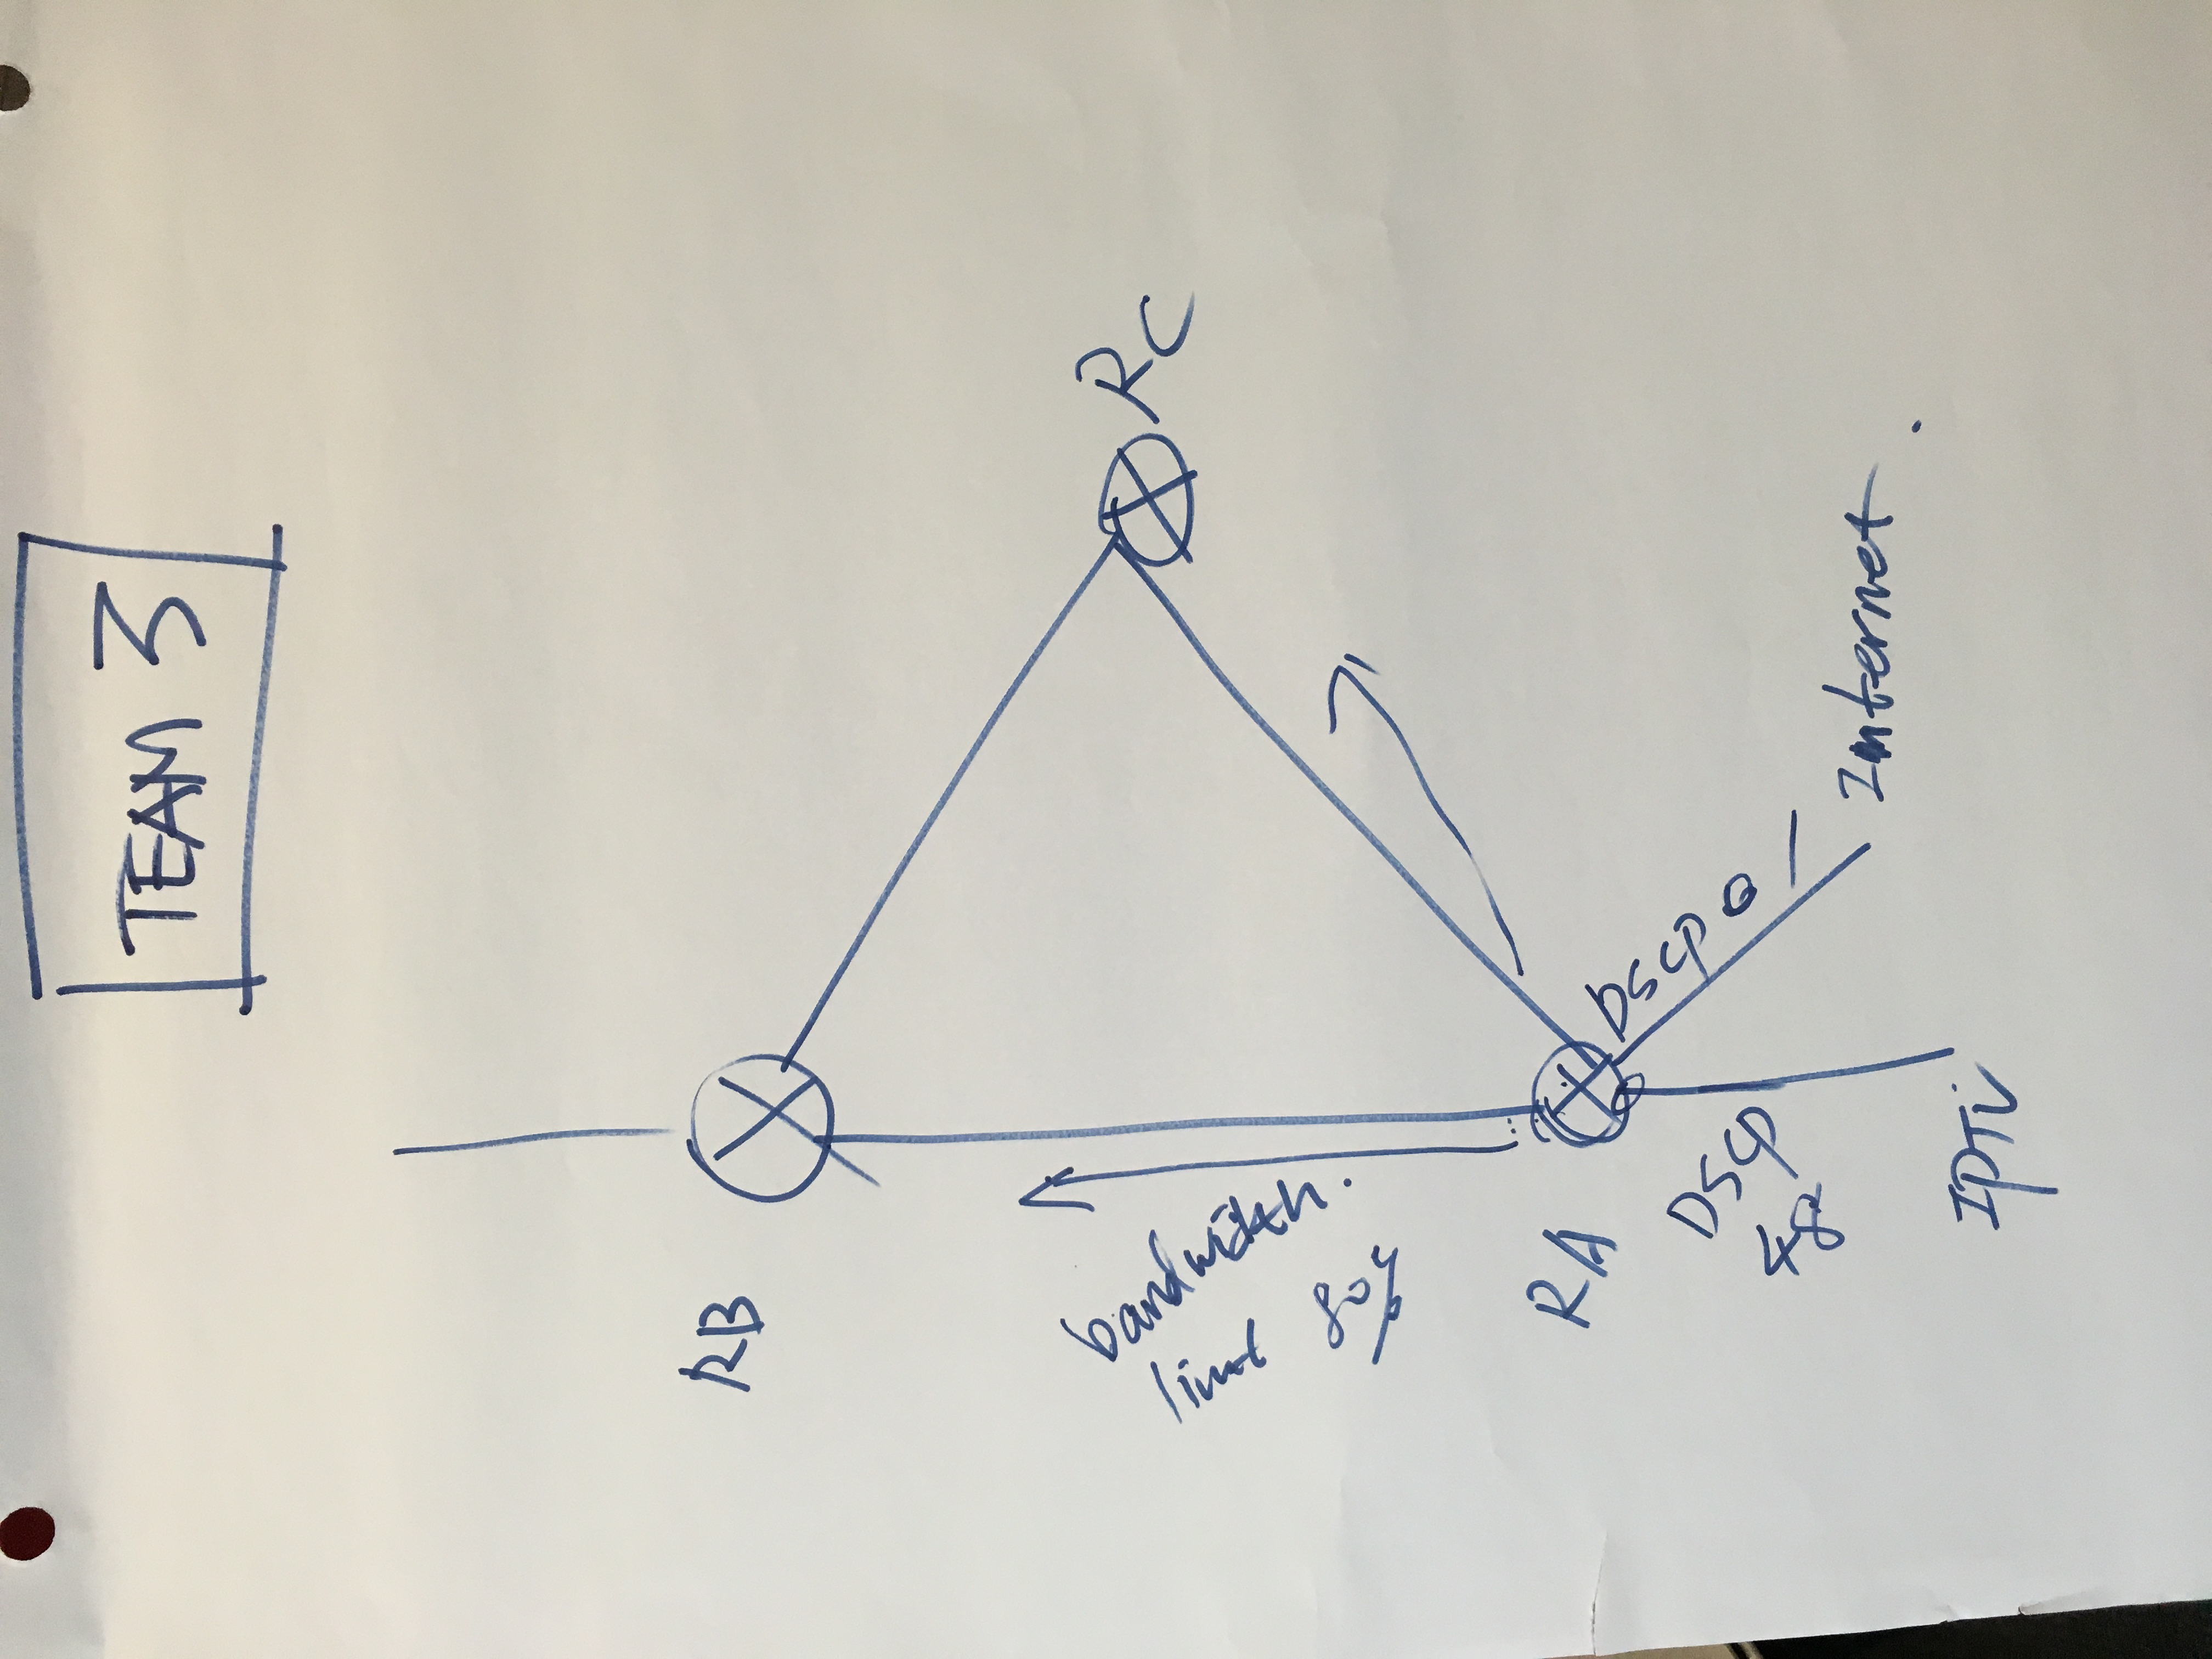 TEAM 3
RB
RC
bandwidth.
limit 80%
RA
DSCP 0
DSCP
48
Internet.
IPTV